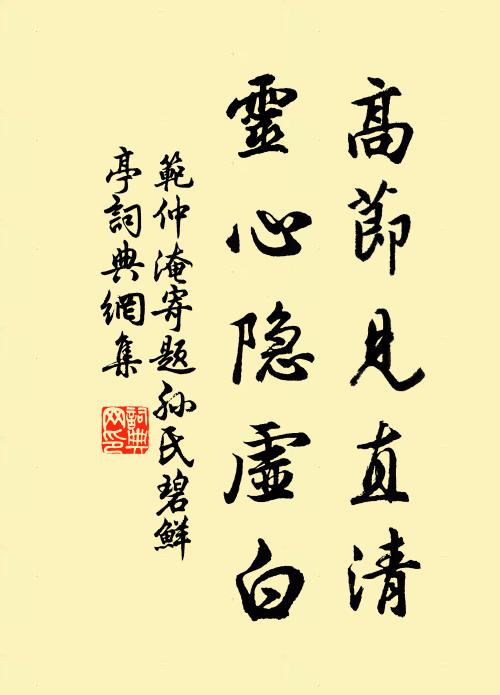 高節見直清
靈心隐虛白
範仲淹寄題孙氏碧鮮
亭詞典網集
詞典
网印